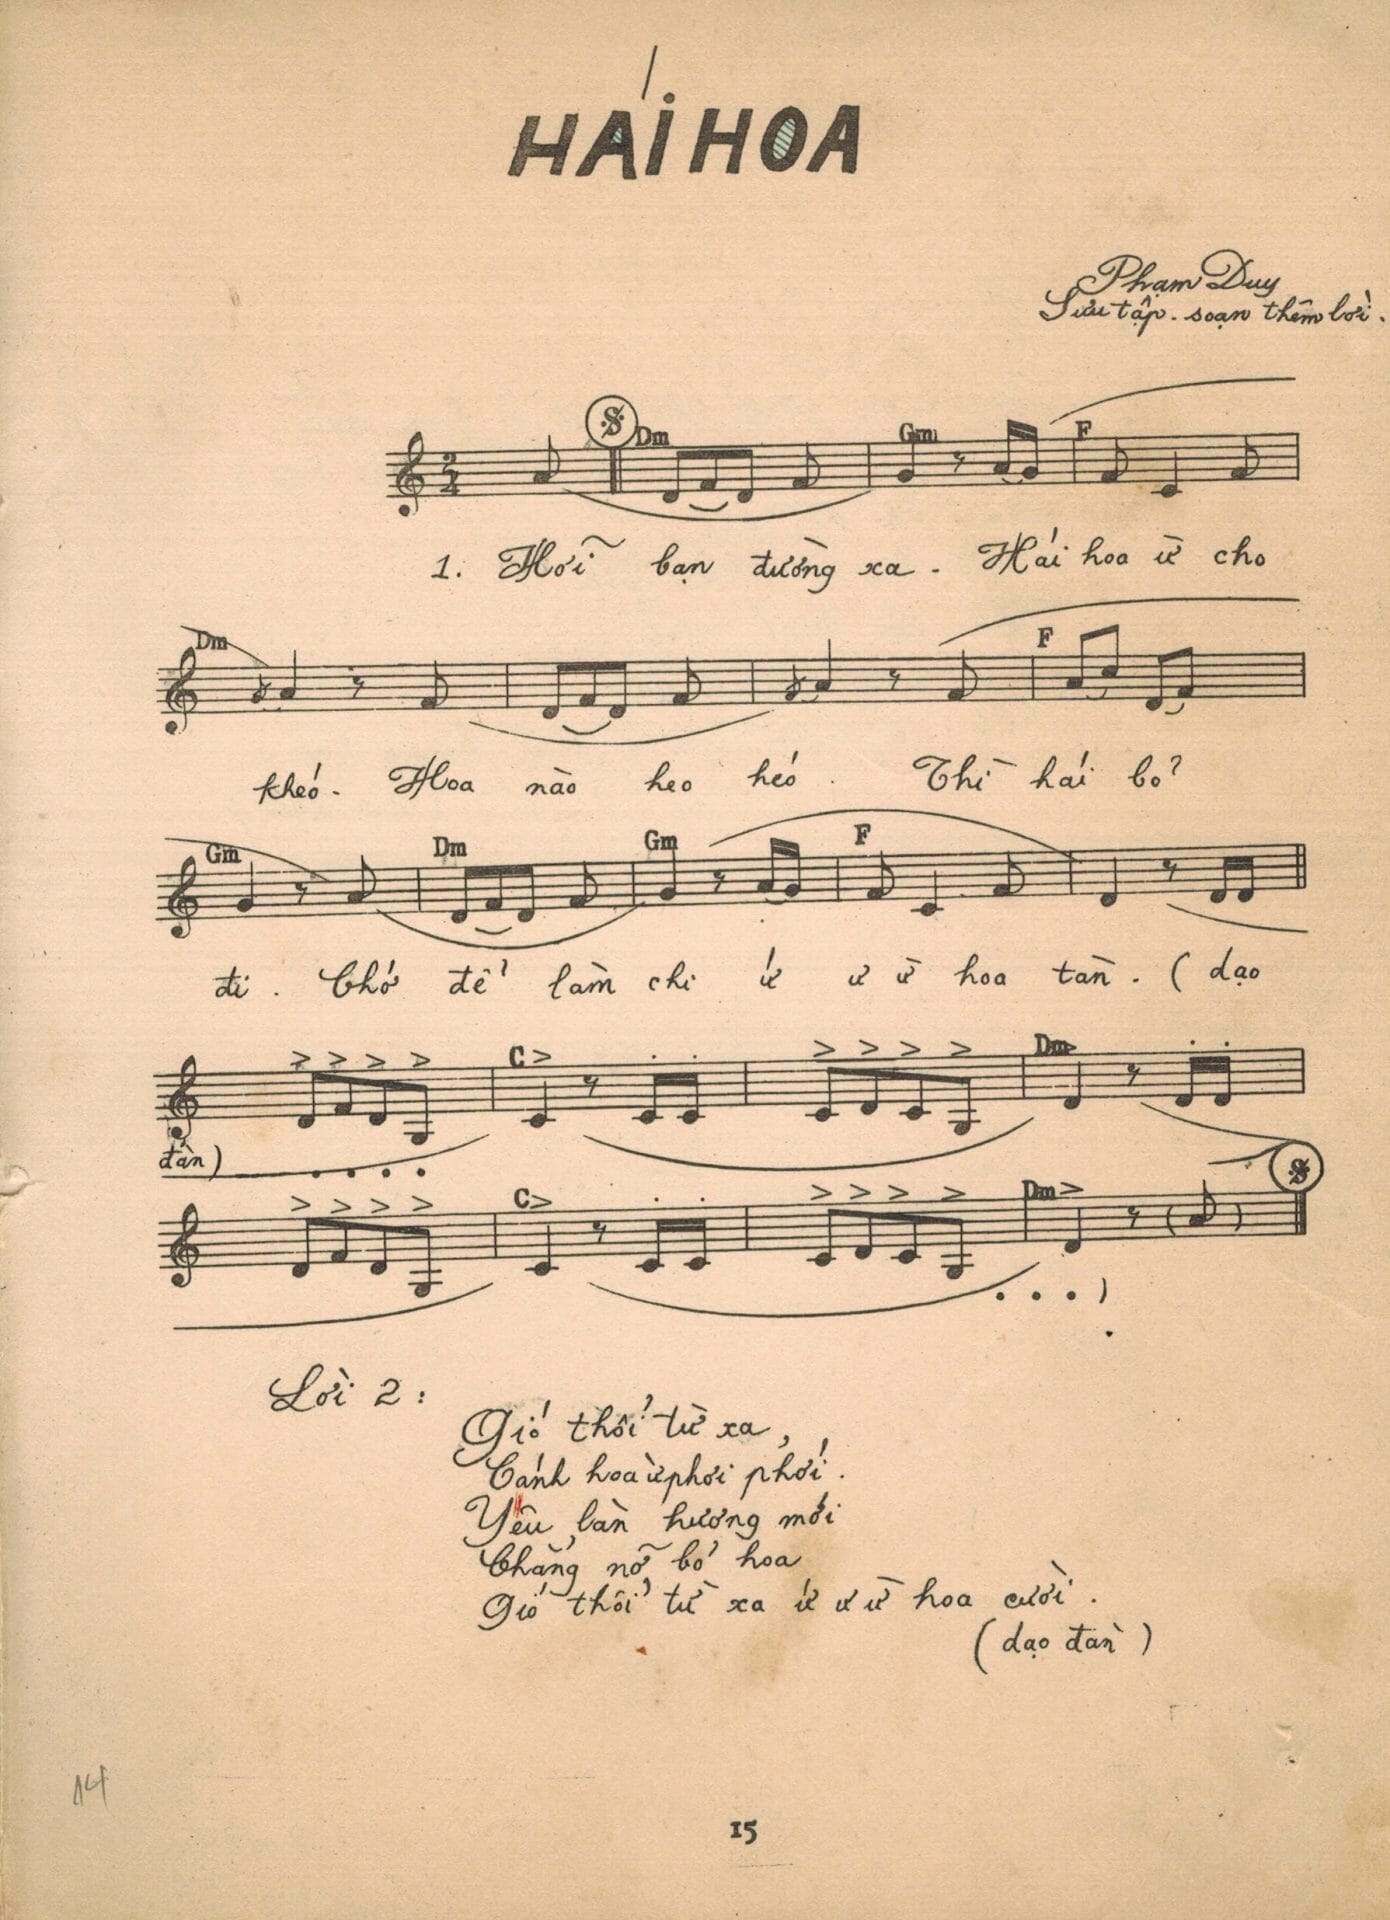 HÁI HOA
Phạm Duy
Sưu tập - soạn thêm lời.
2
4
Dm Gm F
1. Hỡi bạn đường xa - Hái hoa ừ cho
Dm F
khéo - Hoa nào heo héo . Thì hái bỏ
Gm Dm Gm F
đi . Chớ để làm chi ứ ư ừ hoa tàn . ( dạo
C Dm
đàn )
C Dm
Lời 2 :
Gió thổi từ xa ,
Cánh hoa ừ phơi phới .
Yêu làn hương mới
Chẳng nỡ bỏ hoa
Gió thổi từ xa ứ ư ừ hoa cười .
( dạo đàn )
14
15